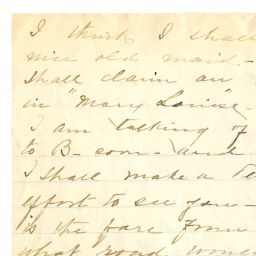 I think I shall
nice old maid-
shall claim an
in "Mary Louise"
I am talking of
to B- soon- and
I shall make a
effort to see you-
is the fare from
what road would